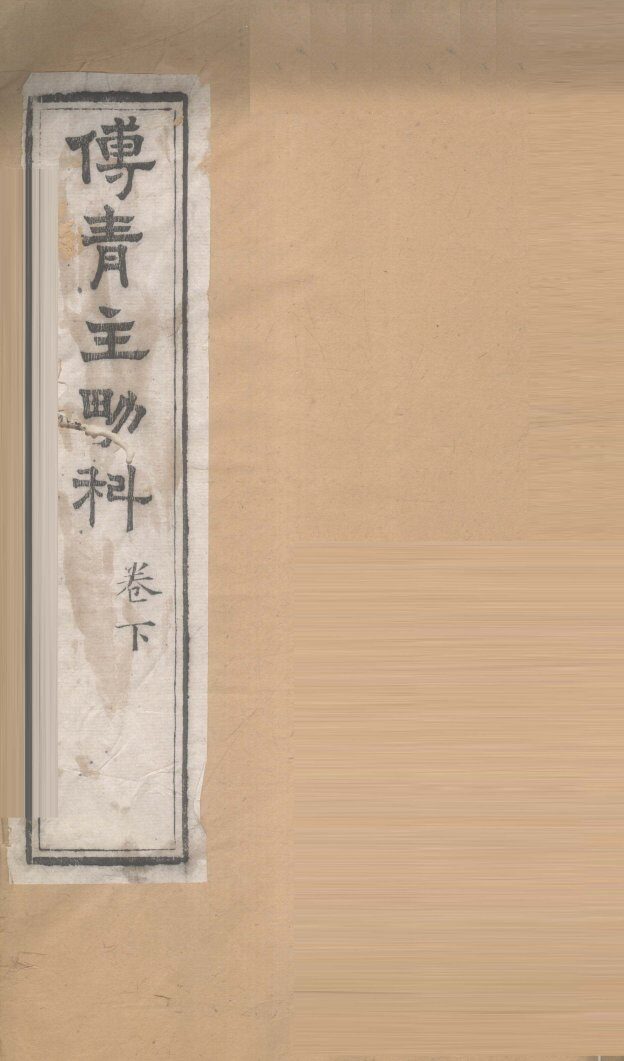 傅青主男科
卷下